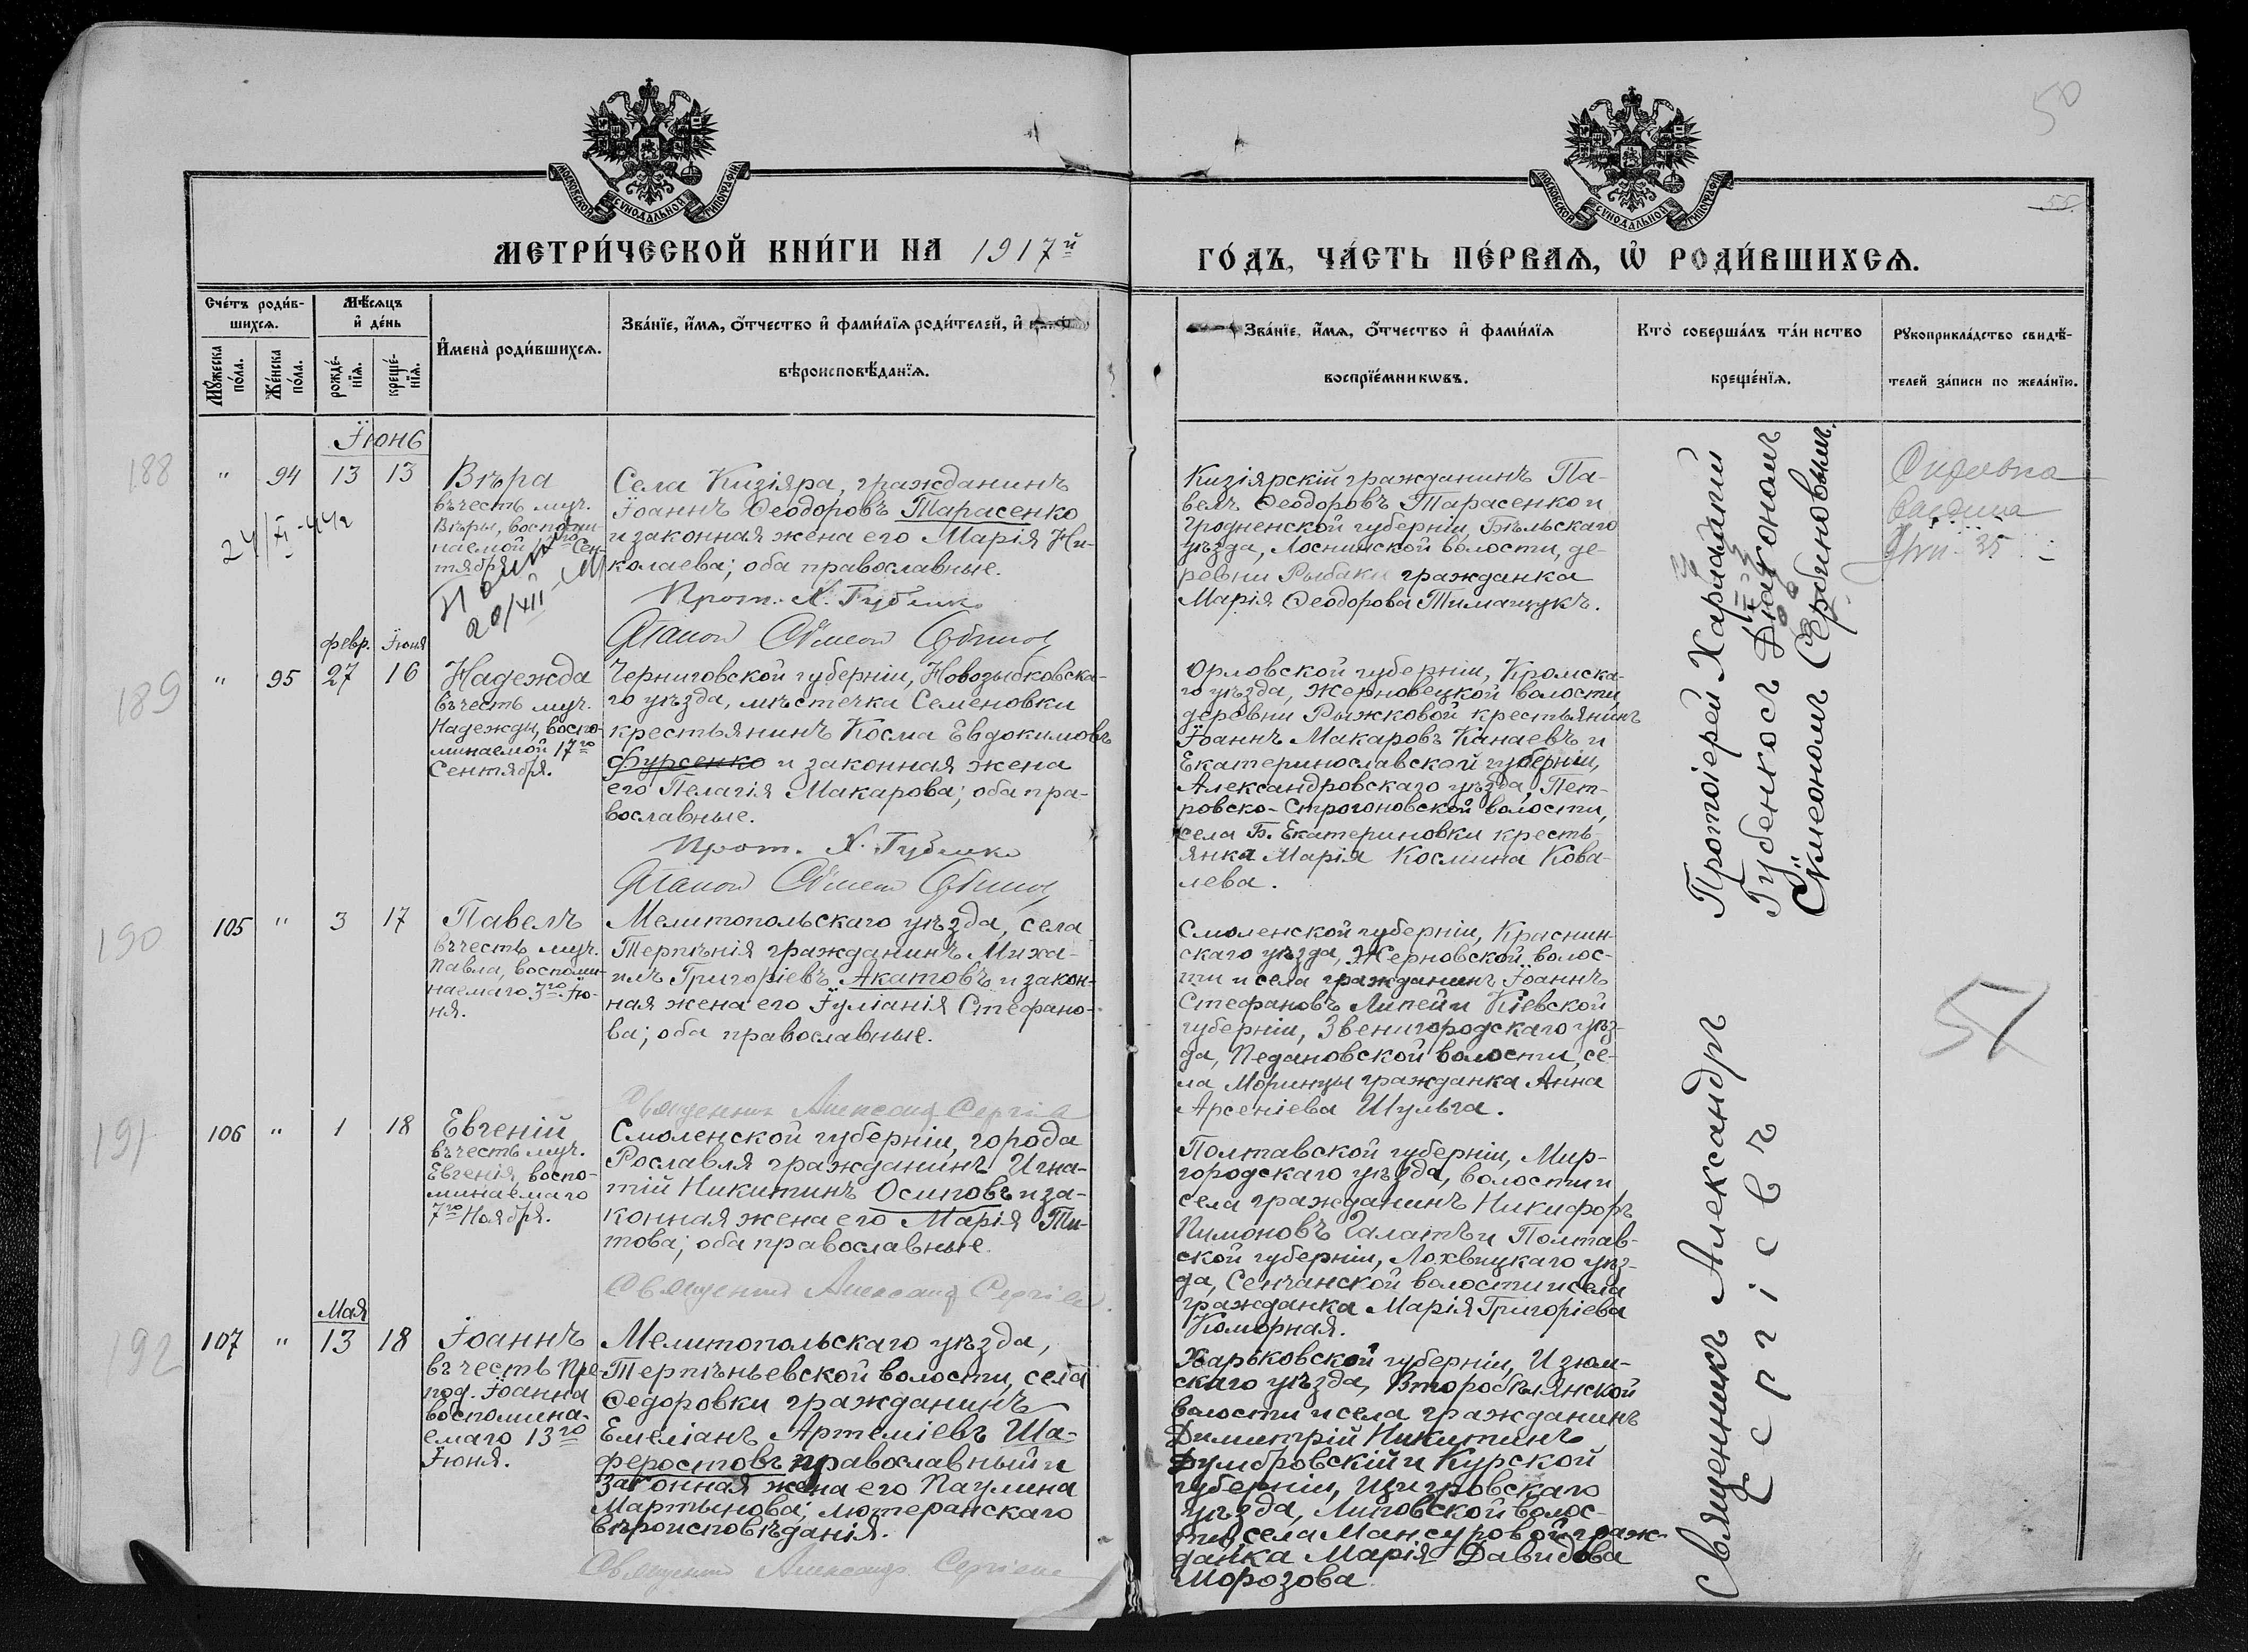 50
55.
МОСКОВСКОЙ СѴНОДАЛЬНОЙ ТИПОГРАФІИ
МОСКОВСКОЙ СѴНОДАЛЬНОЙ ТИПОГРАФІИ
МЕТРИ́ЧЕСКОЙ КНИ́ГИ НА 1917й
ГО́ДЪ, ЧА́СТЬ ПЕ́РВАѦ, Ѡ҆ РОДИ́ВШИХСѦ.
Сче́тъ роди́в-
шихсѧ.
Мꙋжеска
по́ла.
Же́нска
по́ла.
Мѣ́сѧцъ
и҆ де́нь
рожде́-
нїѧ.
креще́-
нїѧ.
И҆мена̀ роди́вшихсѧ.
Зва́нїе, и҆́мѧ, ѻ҆́тчество и҆ фами́лїѧ роди́телей, и҆
вѣроисповѣ́данїѧ.
Зва́нїе, и҆́мѧ, ѻ҆́тчество и҆ фами́лїѧ
воспрїе́мникѡвъ.
Кто̀ соверша́лъ та́инство
креще́нїѧ.
Рꙋкоприкла́дство свидѣ́-
телей за́писи по жела́нїю.
Їюнь
188
" 94 13 13
Вѣра
въ честь муч.
Вѣры, воспоми-
наемой 17го Сен-
тября.
20/XII
Села Кизіяра, гражданинъ
Їоаннъ Ѳеодоровъ Тарасенко
и законная жена его Марія Ни-
колаева; оба православные.
Прот. Х. Губенко
Кизіярскій гражданинъ Па-
велъ Ѳеодоровъ Тарасенко и
Гродненской губерніи, Бѣльскаго
уѣзда, Лоснинской волости, де-
ревни Рыбаки гражданка
Марія Ѳеодорова Тимащукъ.
февр. Їюня
189
" 95 27 16
Надежда
въ честь муч.
Надежды, воспо-
минаемой 17го
Сентября.
Черниговской губерніи, Новозыбковска-
го уѣзда, мѣстечка Семеновки
крестьянинъ Косма Евдокимовъ
Фурсенко и законная жена
его Пелагія Макарова; оба пра-
вославные.
Прот. Х. Губенко
Орловской губерніи, Кромска-
го уѣзда, Жерновецкой волости,
деревни Рыжковой крестьянинъ
Їоаннъ Макаровъ Канаевъ и
Екатеринославской губерніи,
Александровскаго уѣзда, Пет-
ровско-Строгоновской волости,
села Б. Екатериновки кресть-
янка Марія Космина Кова-
лева.
Протоіерей Харлампій
Губенко съ Діакономъ
Сѵмеономъ Сербиновымъ.
190
105 " 3 17
Павелъ
въ честь муч.
Павла, воспоми-
наемаго 3го Їю-
ня.
Мелитопольскаго уѣзда, села
Терпѣнія гражданинъ Миха-
илъ Григоріевъ Акатовъ и закон-
ная жена его Їуліанія Стефано-
ва; оба православные.
Священник Александр Сергіев
Смоленской губерніи, Краснин-
скаго уѣзда, Жерновской волос-
ти и села гражданинъ Їоаннъ
Стефановъ Липей и Кіевской
губерніи, Звенигородскаго уѣз-
да, Педановской волости, се-
ла Моринцы гражданка Анна
Арсеніева Шульга.
51
191
106 " 1 18
Евгеній
въ честь муч.
Евгенія, воспо-
минаемаго
7го Ноября.
Смоленской губерніи, города
Рославля гражданинъ Игна-
тій Никитинъ Осиповъ и за-
конная жена его Марія Ти-
това; оба православные.
Священник Александр Сергіев
Полтавской губерніи, Мир-
городскаго уѣзда, волости и
села гражданинъ Никифоръ
Пимоновъ Галатъ и Полтав-
ской губерніи, Лохвицкаго уѣз-
да, Сенчанской волости и села
гражданка Марія Григоріева
Коморная.
Мая
192
107 " 13 18
Їоаннъ
въ честь Пре-
под. Їоанна
воспомина-
емаго 13го
Їюня.
Мелитопольскаго уѣзда,
Терпѣньевской волости, села
Ѳедоровки гражданинъ
Емеліанъ Артеміевъ Ша-
феростовъ православный и
законная жена его Паулина
Мартынова; лютеранскаго
вѣроисповѣданія.
Священник Александр Сергіев
Харьковской губерніи, Изюм-
скаго уѣзда, Второбѣлянской
волости и села гражданинъ
Димитрій Никитинъ
Думбровскій и Курской
губерніи, Щигровскаго
уѣзда, Липовской волос-
ти, села Мансуровой граж-
данка Марія Давидова
Морозова.
Священникъ Александръ
Сергіевъ